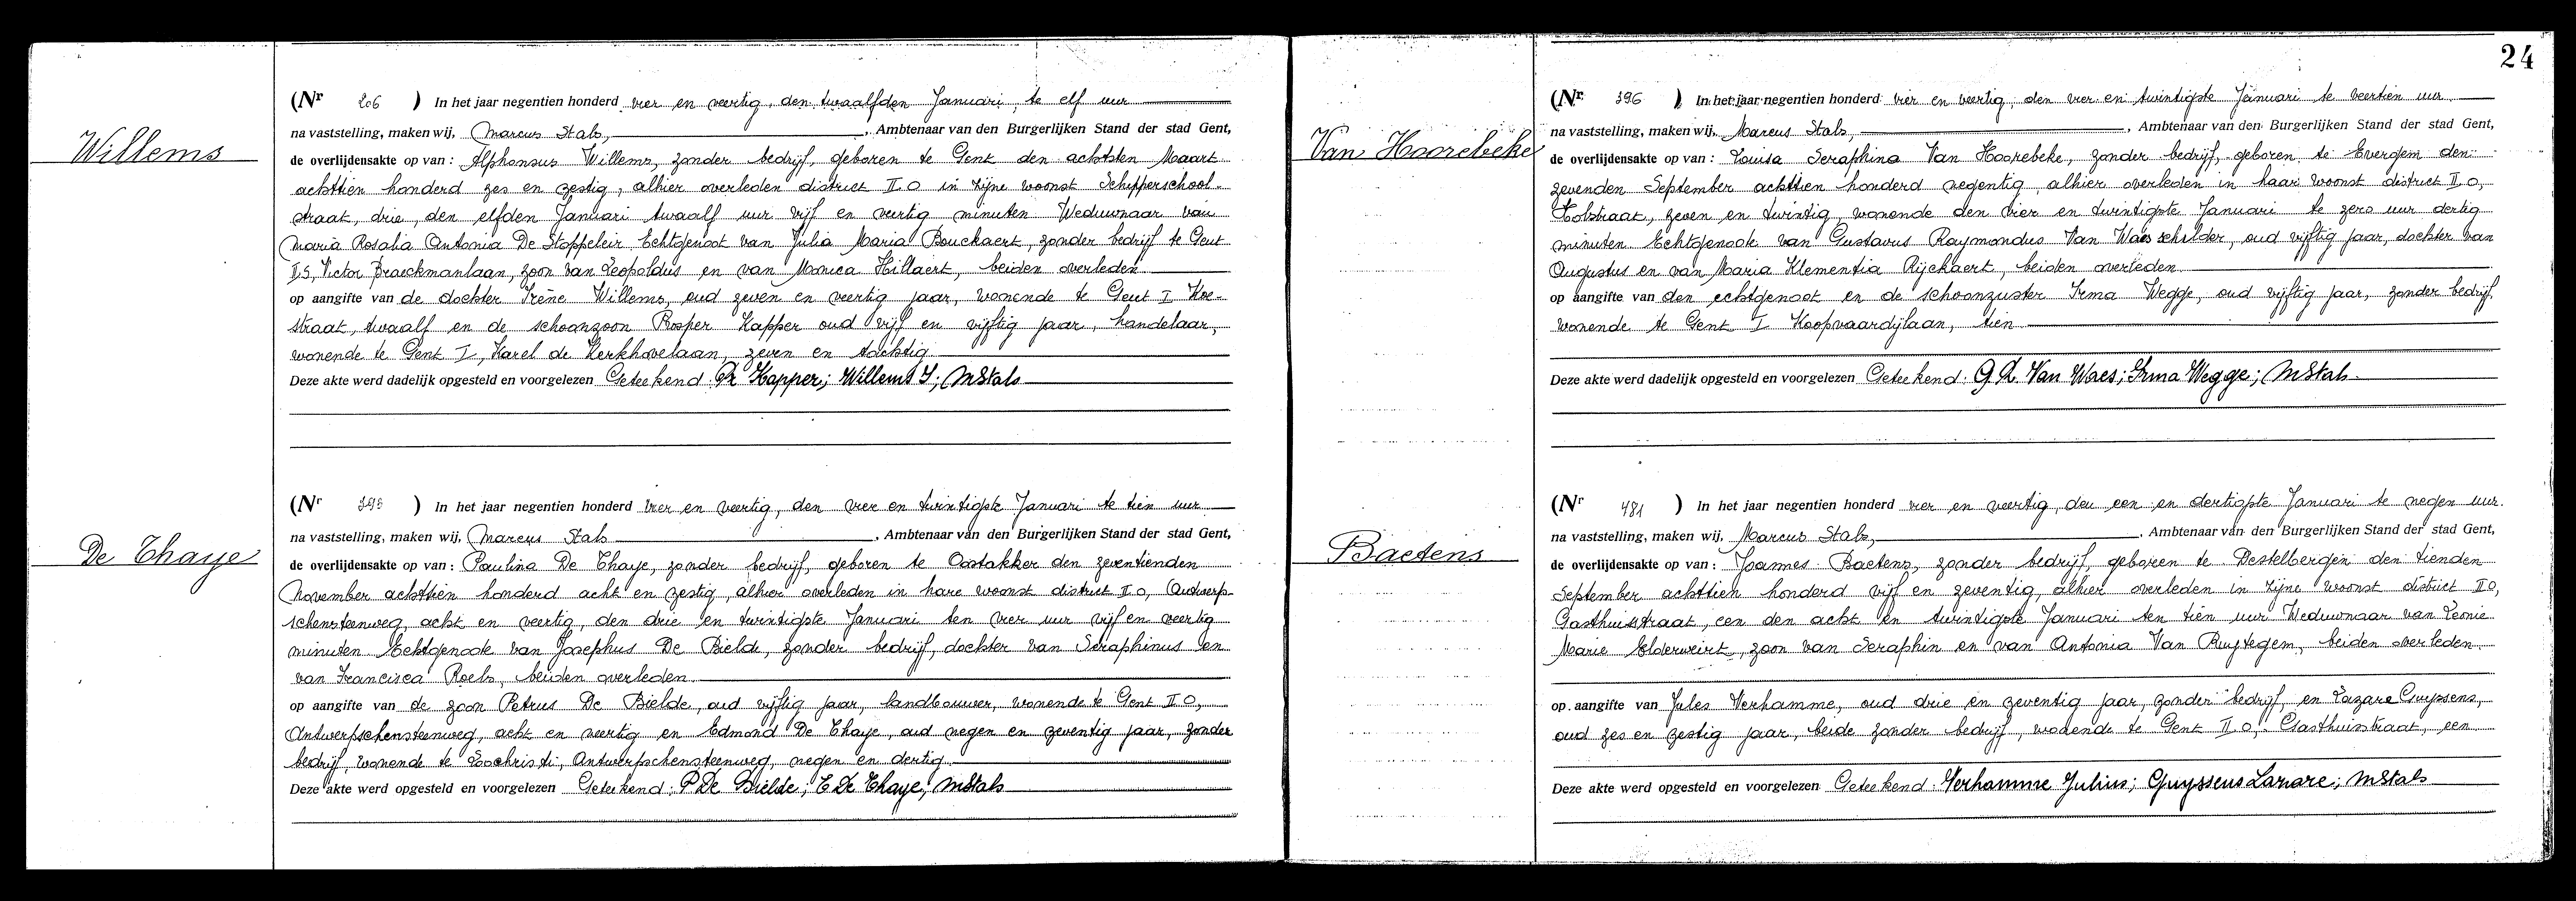 Willems
(Nr 206 ) In het jaar negentien honderd vier en veertig, den twaalfden Januari, te elf uur
na vaststelling, maken wij, Marcus Stals, , Ambtenaar van den Burgerlijken Stand der stad Gent,
de overlijdensakte op van : Alphonsus Willems, zonder bedrijf, geboren te Gent den achtsten Maart
achttien honderd zes en zestig, alhier overleden district II O in zijne woonst Schipperschool-
straat, drie, den elfden Januari twaalf uur vijf en veertig minuten Weduwnaar van
Maria Rosalia Antonia De Stoppeleir Echtgenoot van Julia Maria Bouckaert, zonder bedrijf te Gent
II S, Victor Braeckmanlaan, zoon van Leopoldus en van Monica Hillaert, beiden overleden
op aangifte van de dochter Irène Willems, oud zeven en veertig jaar, wonende te Gent I Koe-
straat, twaalf en de schoonzoon Prosper Kapper oud vijf en vijftig jaar, handelaar,
wonende te Gent I, Karel de Kerkhovelaan, zeven en tachtig
Deze akte werd dadelijk opgesteld en voorgelezen Geteekend: Pr Kapper; Willems I; MStals
De Thaye
(Nr 395 ) In het jaar negentien honderd vier en veertig, den vier en twintigste Januari te tien uur
na vaststelling, maken wij, Marcus Stals , Ambtenaar van den Burgerlijken Stand der stad Gent,
de overlijdensakte op van : Paulina De Thaye, zonder bedrijf, geboren te Oostakker den zeventienden
November achttien honderd acht en zestig, alhier overleden in hare woonst district II O, Antwerp-
schensteenweg, acht en veertig, den drie en twintigste Januari ten vier uur vijf en veertig
minuten Echtgenoote van Josephus De Bielde, zonder bedrijf, dochter van Seraphinus en
van Francisca Roels, beiden overleden
op aangifte van de zoon Petrus De Bielde, oud vijftig jaar, landbouwer, wonende te Gent II O,
Antwerpschensteenweg, acht en veertig en Edmond De Thaye, oud negen en zeventig jaar, zonder
bedrijf, wonende te Loochristi, Antwerpschensteenweg, negen en dertig
Deze akte werd opgesteld en voorgelezen Geteekend: P De Bielde; E De Thaye; MStals
24
Van Hoorebeke
(Nr 396 ) In het jaar negentien honderd vier en veertig, den vier en twintigste Januari te veertien uur
na vaststelling, maken wij, Marcus Stals, , Ambtenaar van den Burgerlijken Stand der stad Gent,
de overlijdensakte op van : Louisa Seraphina Van Hoorebeke, zonder bedrijf, geboren te Evergem den
zevenden September achttien honderd negentig, alhier overleden in haar woonst district II O,
Holstraat, zeven en twintig, wonende den vier en twintigste Januari te zero uur dertig
minuten Echtgenoote van Gustavus Raymondus Van Waes schilder, oud vijftig jaar, dochter van
Augustus en van Maria Klementia Rijckaert, beiden overleden
op aangifte van den echtgenoot en de schoonzuster Irma Wegge, oud vijftig jaar, zonder bedrijf,
wonende te Gent I Koopvaardijlaan, tien
Deze akte werd dadelijk opgesteld en voorgelezen Geteekend: G R Van Waes; Irma Wegge; MStals
Baetens
(Nr 481 ) In het jaar negentien honderd vier en veertig, den een en dertigste Januari te negen uur
na vaststelling, maken wij, Marcus Stals, , Ambtenaar van den Burgerlijken Stand der stad Gent,
de overlijdensakte op van : Joannes Baetens, zonder bedrijf, geboren te Destelbergen den tienden
September achttien honderd vijf en zeventig, alhier overleden in zijne woonst district II O,
Gasthuisstraat, een den acht en twintigste Januari ten tien uur Weduwnaar van Leonie
Marie Elderweirt, zoon van Seraphin en van Antonia Van Ruytegem, beiden overleden
op aangifte van Jules Verhamme, oud drie en zeventig jaar, zonder bedrijf, en Lazare Cuyssens,
oud zes en zestig jaar, beide zonder bedrijf, wonende te Gent II O, Gasthuisstraat, een
Deze akte werd opgesteld en voorgelezen Geteekend: Verhamme Julius; Guyssens Lazare; MStals